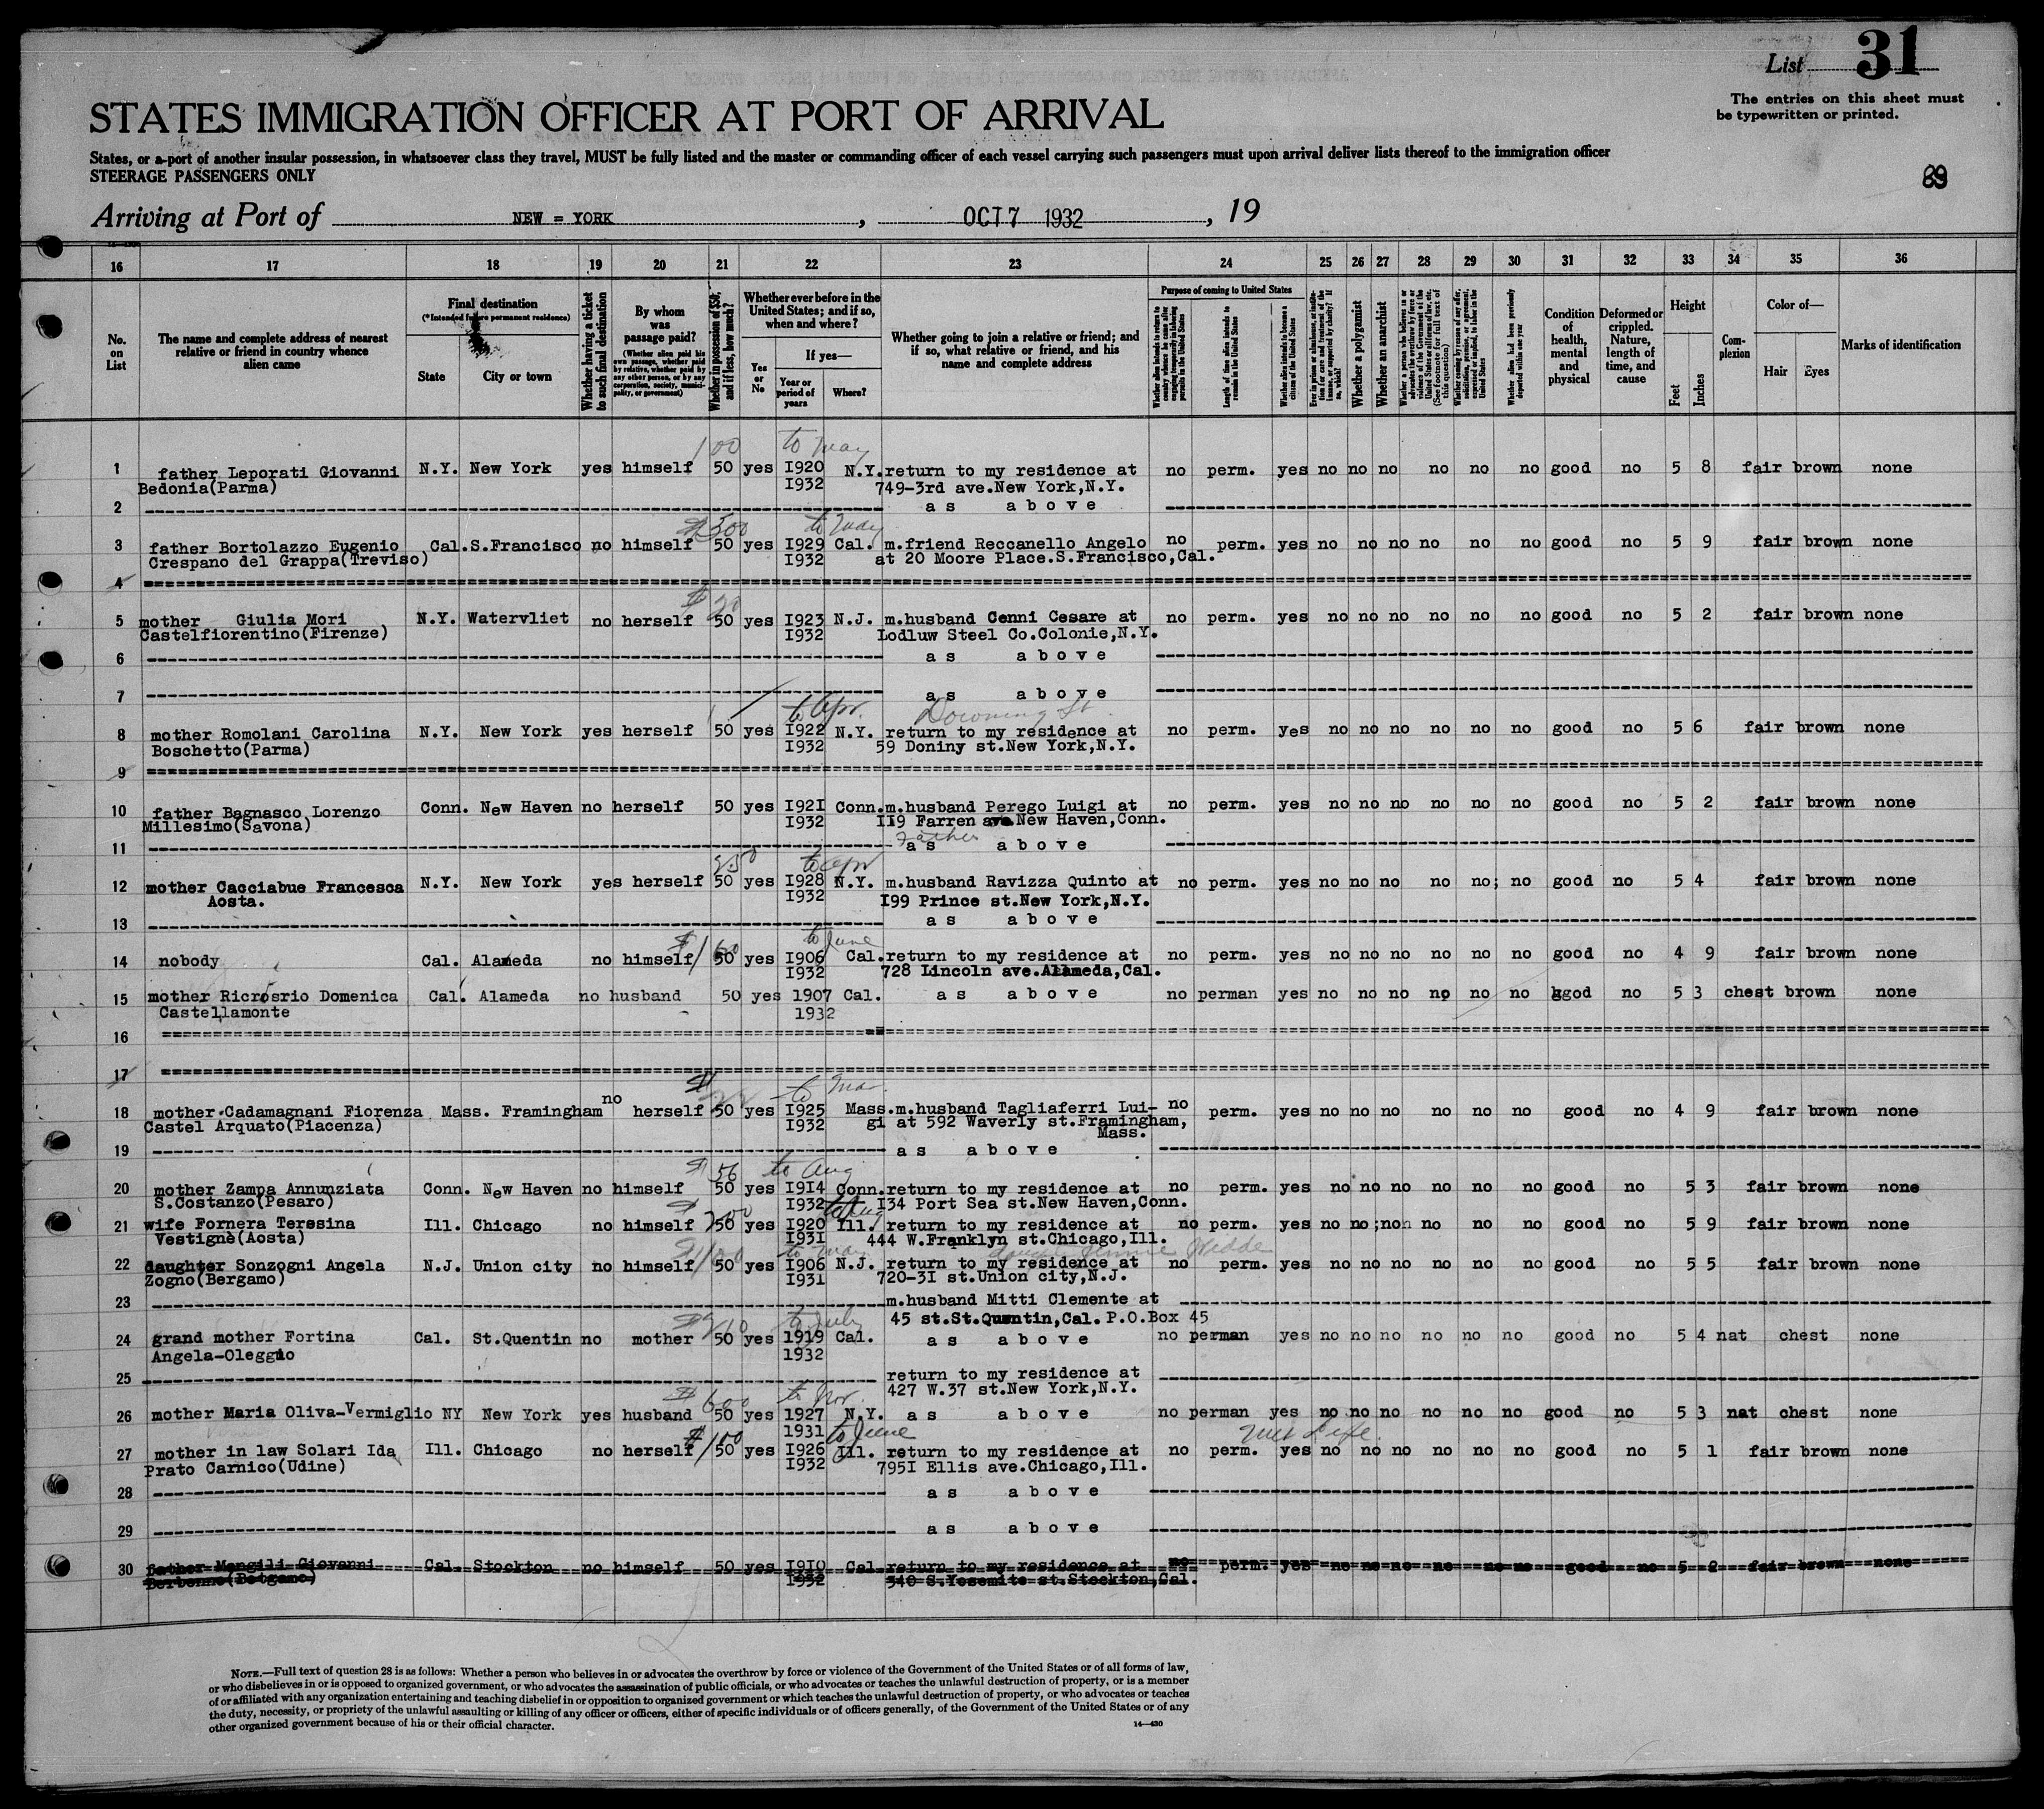 List 31
The entries on this sheet must
be typewritten or printed.
STATES IMMIGRATION OFFICER AT PORT OF ARRIVAL
States, or a port of another insular possession, in whatsoever class they travel, MUST be fully listed and the master or commanding officer of each vessel carrying such passengers must upon arrival deliver lists thereof to the immigration officer
STEERAGE PASSENGERS ONLY
89
Arriving at Port of NEW = YORK, OCT 7 1932, 19
16 17 18 19 20 21 22 23 24 25 26 27 28 29 30 31 32 33 34 35 36
No. on List
The name and complete address of nearest relative or friend in country whence alien came
Final destination
(*Intended future permanent residence)
State
City or town
Whether having a ticket to such final destination
By whom was passage paid?
(Whether alien paid his own passage, whether paid by relative, whether paid by any other person, or by any corporation, society, municipality, or government)
Whether in possession of $50, and if less, how much?
Whether ever before in the United States; and if so, when and where?
Yes or No
If yes—
Year or period of years
Where?
Whether going to join a relative or friend; and if so, what relative or friend, and his name and complete address
Purpose of coming to United States
Whether alien intends to return to country whence he came after engaging temporarily in laboring pursuits in the United States
Length of time alien intends to remain in the United States
Whether alien intends to become a citizen of the United States
Ever in prison or almshouse, or institution for care and treatment of the insane, or supported by charity? If so, which?
Whether a polygamist
Whether an anarchist
(See footnote for full text of this question)
Whether coming by reason of any offer, solicitation, promise, or agreement, expressed or implied, to labor in the United States
Whether alien had been previously deported within one year
Condition of health, mental and physical
Deformed or crippled. Nature, length of time, and cause
Height
Feet
Inches
Complexion
Color of—
Hair
Eyes
Marks of identification
100 to May
1 father Leporati Giovanni N.Y. New York yes himself 50 yes I920 N.Y. return to my residence at no perm. yes no no no no no no good no 5 8 fair brown none
Bedonia(Parma) I932 749-3rd ave.New York,N.Y.
2 as above
$ 500 to May
3 father Bortolazzo Eugenio Cal. S.Francisco no himself 50 yes I929 Cal. m.friend Reccanello Angelo no perm. yes no no no no no no good no 5 9 fair brown none
Crespano del Grappa(Treviso) I932 at 20 Moore Place.S.Francisco,Cal.
4
$ 20
5 mother Giulia Mori N.Y. Watervliet no herself 50 yes I923 N.J. m.husband Cenni Cesare at no perm. yes no no no no no no good no 5 2 fair brown none
Castelfiorentino(Firenze) I932 Lodluw Steel Co.Colonie,N.Y.
6 as above
7 as above
to Apr. Downing St
8 mother Romolani Carolina N.Y. New York yes herself 50 yes I922 N.Y. return to my residence at no perm. yes no no no no no no good no 5 6 fair brown none
Boschetto(Parma) I932 59 Doniny st.New York,N.Y.
9
10 father Bagnasco Lorenzo Conn. New Haven no herself 50 yes I92I Conn. m.husband Perego Luigi at no perm. yes no no no no no no good no 5 2 fair brown none
Millesimo(Savona) I932 II9 Farren ave New Haven,Conn.
Father
11 as above
250 to apr
12 mother Cacciabue Francesca N.Y. New York yes herself 50 yes I928 N.Y. m.husband Ravizza Quinto at no perm. yes no no no no no; no good no 5 4 fair brown none
Aosta. I932 I99 Prince st.New York,N.Y.
13 as above
$ 160 to June
14 nobody Cal. Alameda no himself 50 yes I906 Cal. return to my residence at no perm. yes no no no no no no good no 4 9 fair brown none
I932 728 Lincoln ave.Alameda,Cal.
15 mother Ricrosrio Domenica Cal. Alameda no husband 50 yes 1907 Cal. as above no perman yes no no no no no no good no 5 3 chest brown none
Castellamonte 1932
16
17
$ to Mar.
18 mother Cadamagnani Fiorenza Mass. Framingham no herself 50 yes I925 Mass. m.husband Tagliaferri Lui- no perm. yes no no no no no no good no 4 9 fair brown none
Castel Arquato(Piacenza) I932 gi at 592 Waverly st.Framingham,
Mass.
19 as above
$ 56 to Aug
20 mother Zampa Annunziata Conn. New Haven no himself 50 yes I9I4 Conn. return to my residence at no perm. yes no no no no no no good no 5 3 fair brown none
S.Costanzo(Pesaro) I932 I34 Port Sea st.New Haven,Conn.
$ 200 to Aug
21 wife Fornera Teresina Ill. Chicago no himself 50 yes I920 Ill. return to my residence at no perm. yes no no; no no no no good no 5 9 fair brown none
Vestignè(Aosta) I93I 444 W.Franklyn st.Chicago,Ill.
$ 100 to May
22 daughter Sonzogni Angela N.J. Union city no himself 50 yes I906 N.J. return to my residence at no perm. yes no no no no no no good no 5 5 fair brown none
Zogno(Bergamo) I93I 720-3I st.Union city,N.J.
23 m.husband Mitti Clemente at
45 st.St.Quentin,Cal. P.O.Box 45
$ 210 to July
24 grand mother Fortina Cal. St.Quentin no mother 50 yes 1919 Cal. as above no perman yes no no no no no no good no 5 4 nat chest none
Angela-Oleggio 1932
25 return to my residence at
427 W.37 st.New York,N.Y.
$ 600 to Nov.
26 mother Maria Oliva-Vermiglio NY New York yes husband 50 yes 1927 N.Y. as above no perman yes no no no no no no good no 5 3 nat chest none
1931
$ 100 to June
27 mother in law Solari Ida Ill. Chicago no herself 50 yes I926 Ill. return to my residence at no perm. yes no no no no no no good no 5 1 fair brown none
Prato Carnico(Udine) I932 795I Ellis ave.Chicago,Ill.
28 as above
29 as above
30 father Mongili Giovanni Cal. Stockton no himself 50 yes I9I0 Cal. return to my residence at no perm. yes no no no no no no good no 5 2 fair brown none
I932 340 S.Yosemite st.Stockton,Cal.
NOTE.—Full text of question 28 is as follows: Whether a person who believes in or advocates the overthrow by force or violence of the Government of the United States or of all forms of law,
or who disbelieves in or is opposed to organized government, or who advocates the assassination of public officials, or who advocates or teaches the unlawful destruction of property, or is a member
of or affiliated with any organization entertaining and teaching disbelief in or opposition to organized government or which teaches the unlawful destruction of property, or who advocates or teaches
the duty, necessity, or propriety of the unlawful assaulting or killing of any officer or officers, either of specific individuals or of officers generally, of the Government of the United States or of any
other organized government because of his or their official character.
14—430